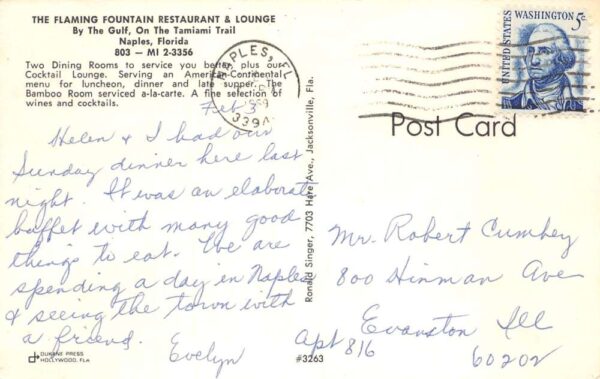 THE FLAMING FOUNTAIN RESTAURANT & LOUNGE
By The Gulf, On The Tamiami Trail
Naples, Florida
803 — MI 2-3356
Two Dining Rooms to service you better, plus our
Cocktail Lounge. Serving an American-Continental
menu for luncheon, dinner and late supper. The
Bamboo Room serviced a-la-carte. A fine selection of
wines and cocktails.
Feb 3
Helen & I had our
Sunday dinner here last
night. It was an elaborate
buffet with many good
things to eat. We are
spending a day in Naples
& seeing the town with
a friend.
Evelyn
DUKANE PRESS
HOLLYWOOD, FLA
#3263
Ronald Singer, 7703 Hare Ave., Jacksonville, Fla.
NAPLES, FL
339
UNITED STATES
WASHINGTON 5c
Post Card
Mr. Robert Cumbey
800 Hinman Ave
Apt 816
Evanston Ill
60202